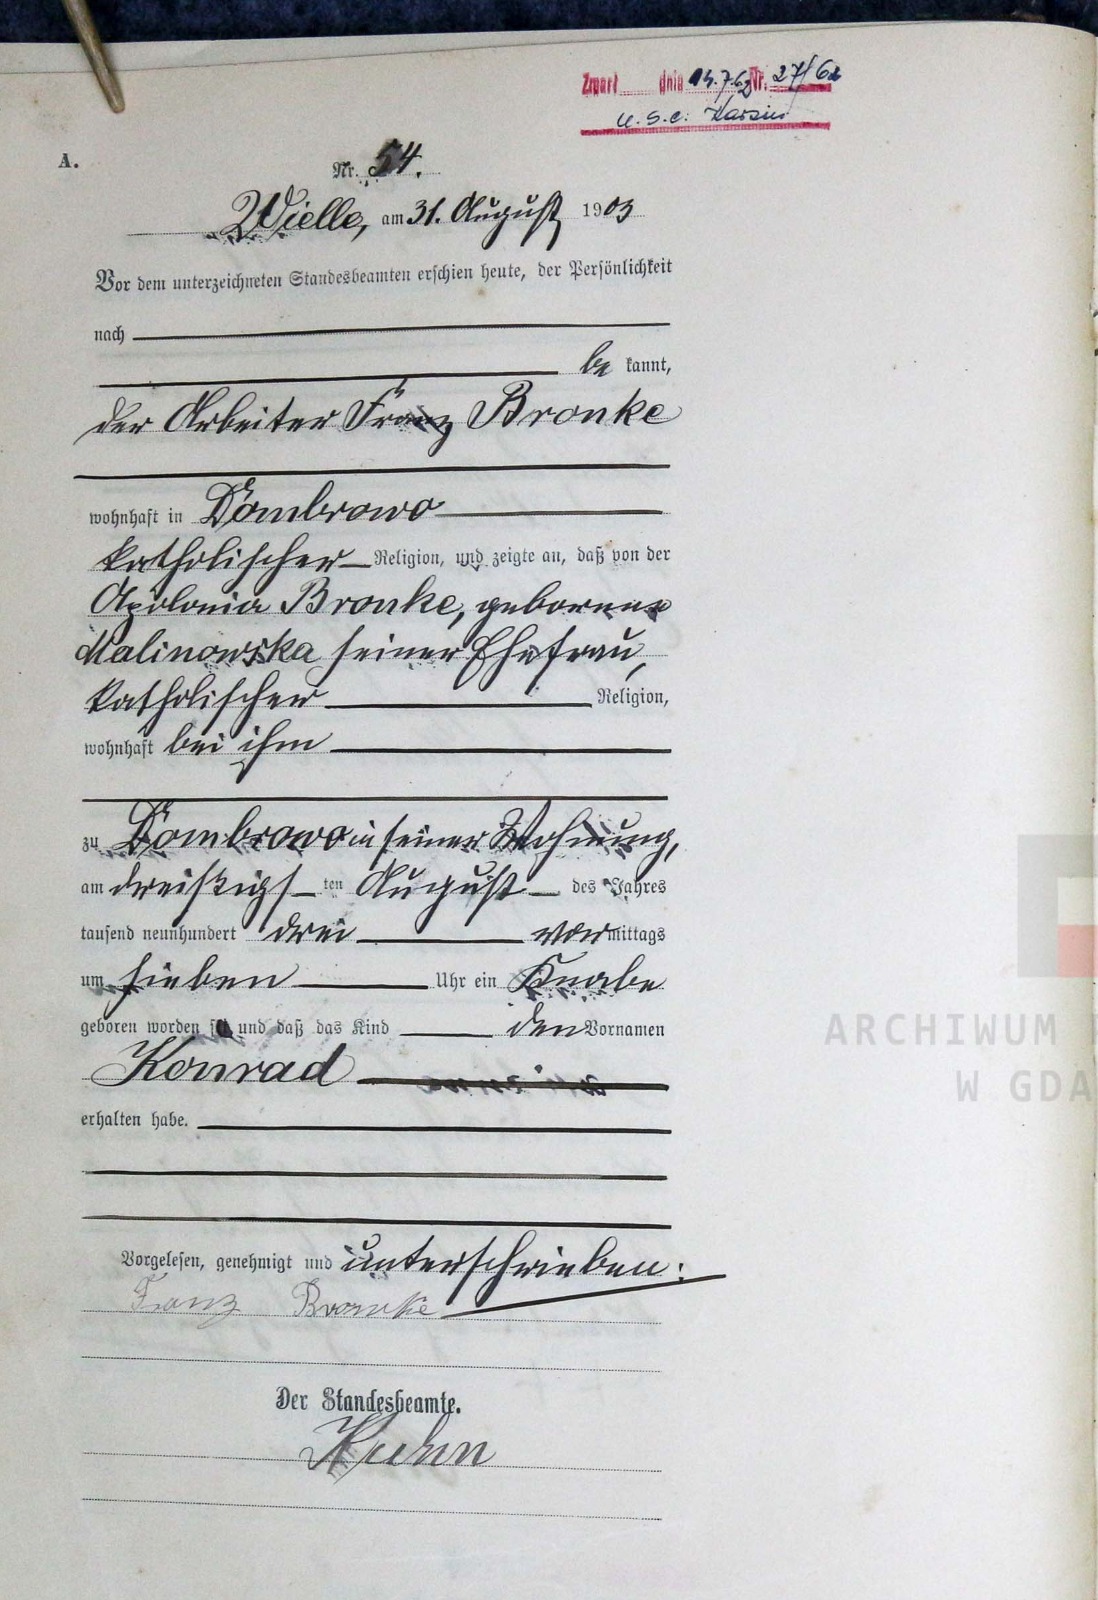 Zmarł dnia 14.7.62 Nr. 27/62
U.S.C. Karsin
A.
Nr. 54.
Wielle, am 31. August 1903
Vor dem unterzeichneten Standesbeamten erschien heute, der Persönlichkeit
nach
be kannt,
der Arbeiter Franz Bronke
wohnhaft in Dombrowo
katholischer Religion, und zeigte an, daß von der
Apolonia Bronke, geborene
Malinowska seiner Ehefrau,
katholischer Religion,
wohnhaft bei ihm
zu Dombrowo in seiner Wohnung,
am dreißigsten August des Jahres
tausend neunhundert drei vormittags
um sieben Uhr ein Knabe
geboren worden sei und daß das Kind den Vornamen
Konrad
erhalten habe.
Vorgelesen, genehmigt und unterschrieben:
Franz Bronke
Der Standesbeamte.
Kuhn
ARCHIWUM
W GDA